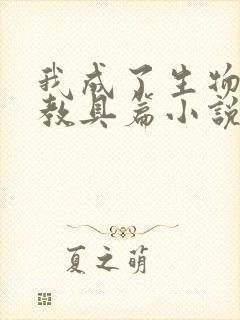 我成了生物
教具篇小說
夏之萌